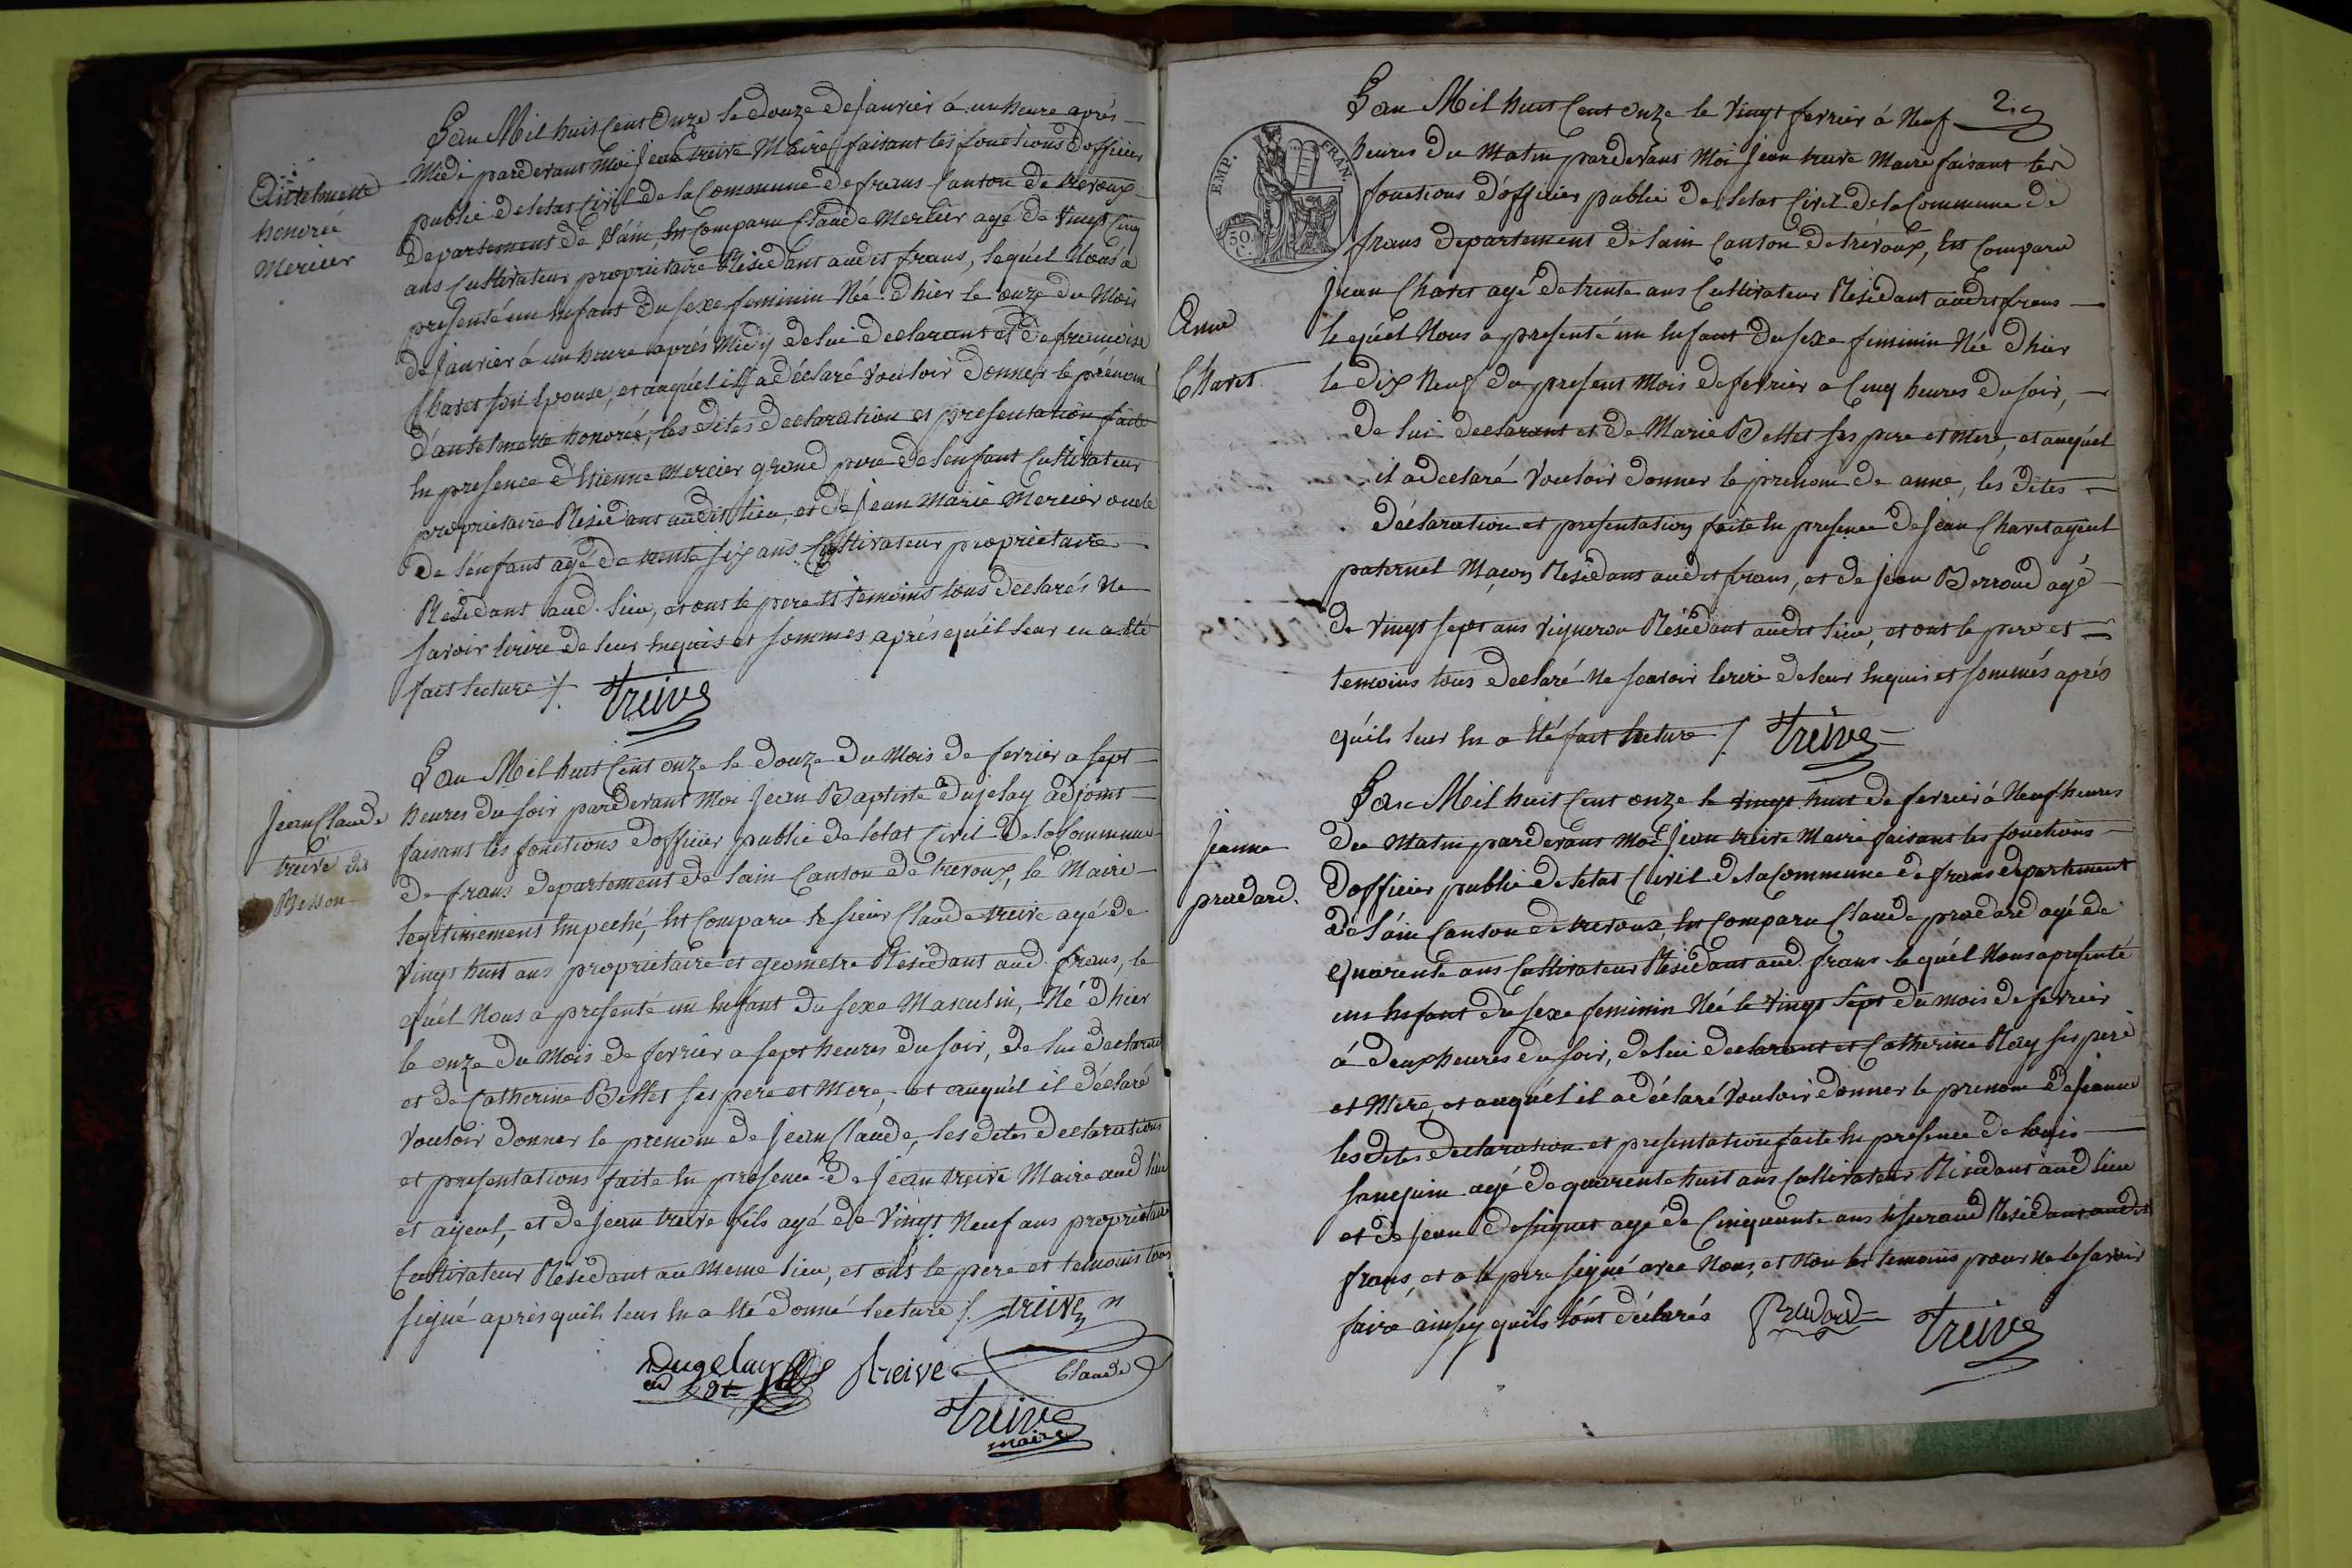 L'an Mil huit Cent Onze le douze de Janvier à un heure après
Midi pardevant Moi Jean treive Maire faisant les fonctions d'officier
public de letat Civil de la Commune de frans Canton de trevoux
Antelmette
honorée
Mercier
departement de l'ain, Est Comparu Claude Mercier agé de Vingt Cinq
ans Cultivateur proprietaire Résidant audit frans, lequel Nous a
presenté un Enfant du sexe feminin Née d'hier le onze du Mois
de Janvier à un heure après Midy de lui declarant et de francoise
Charet son Epouse, et auquel il a déclaré Vouloir Donner le prénom
d'antelmette honorée, les dites declaration et presentation faite
En presence d'Etienne Mercier grand pere de l'enfant Cultivateur
proprietaire Résidant audit lieu, et de Jean Marie Mercier oncle
de l'enfant agé de trente six ans Cultivateur proprietaire
Résidant aud. lieu, et ont le pere et temoins tous declarés Ne
savoir Ecrire de leur Enquis et sommés après qu'il leur en a Eté
fait lecture /. Treive
L'an Mil huit Cent onze le douze du Mois de fevrier a sept
Jean Claude
treive dit
Besson
heures du soir pardevant Moi Jean Baptiste Dujelay adjoint
faisant les fonctions d'officier public de letat Civil de la Commune
de frans departement de lain Canton de trevoux, le Maire
legitimement Empeché, Est Comparu le sieur Claude treive agé de
Vingt huit ans proprietaire et géometre Résidant aud. frans, le
quel Nous a presenté un Enfant du sexe Masculin, Né d'hier
le onze du Mois de fevrier a sept heures du soir, de lui declarant
et de Catherine Bettet ses pere et Mere, et auquel il déclaré
Vouloir donner le prenom de Jean Claude, les dites declarations
et presentations faite En presence de Jean treive Maire aud lieu
et ayeul, et de Jean treive fils agé de Vingt Neuf ans proprietaire
Cultivateur Résidant au Meme lieu, et ont le pere et temoins tous
signé après quils leur En a Eté donné lecture /. treive
Dugelay
adjt treive Claude
Treive
maire
2.
L'an Mil huit Cent onze le Vingt fevrier à Neuf
EMP. FRAN.
50 C.
heures du Matin pardevant Moi Jean treive Maire faisant les
fonctions d'officier public de letat Civil de la Commune de
frans departement de lain Canton de trevoux, Est Comparu
Jean Charet agé de trente ans Cultivateur Résidant audit frans
Anne
Charet.
lequel Nous a presenté un Enfant du sexe feminin Née d'hier
le dix Neuf du present Mois de fevrier a Cinq heures du soir,
de lui declarant et de Marie Bettet ses pere et Mere, et auquel
il a declaré Vouloir donner le prenom de anne, les dites
déclaration et presentation faite En presence de Jean Charet ayeul
paternel Maçon Résidant audit frans, et de Jean Berroud agé
de Vingt sept ans Vigneron Résidant audit lieu, et ont le pere et
temoins tous declaré Ne scavoir Ecrire de leur Enquis et sommés après
qu'ils leur En a Eté fait lecture /. Treive
L'an Mil huit Cent onze le Vingt huit de fevrier à Neuf heures
Jeanne
pradard.
du Matin pardevant Moi Jean treive Maire faisant les fonctions
d'officier public de letat Civil de la Commune de frans departement
de l'ain Canton de trevoux, Est Comparu Claude pradard agé de
quarente ans Cultivateur Résidant aud. frans lequel Nous a presenté
un Enfant du sexe feminin Née le Vingt Sept du mois de fevrier
à deux heures du soir, de lui declarant et Catherine Rey ses pere
et Mere, et auquel il a déclaré Vouloir donner le prenom de Jeanne
les dites declaration et presentation faite En presence de louis
sanquin agé de quarente huit ans Cultivateur Résidant aud lieu
et de Jean designet agé de Cinquante ans tisserand Résidant audit
frans, et a le pere signé avec Nous, et Non les temoins pour Ne le savoir
faire ainsy quils l'ont déclarés Pradard Treive